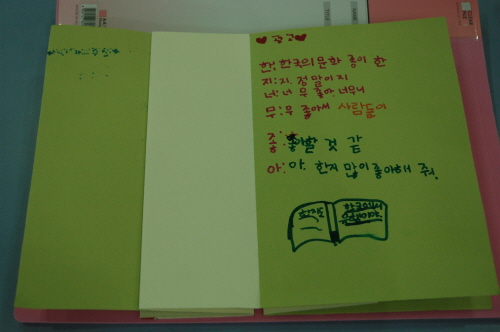 ♥광고♥
한: 한국의 문화 종이 한
지: 지. 정말이지
너: 너무 좋따. 너무너
무: 무 좋아써 사람들이
좋: 좋아할 것 같
아: 아. 한지 많이 좋아해 줘.
한지도
한국에서